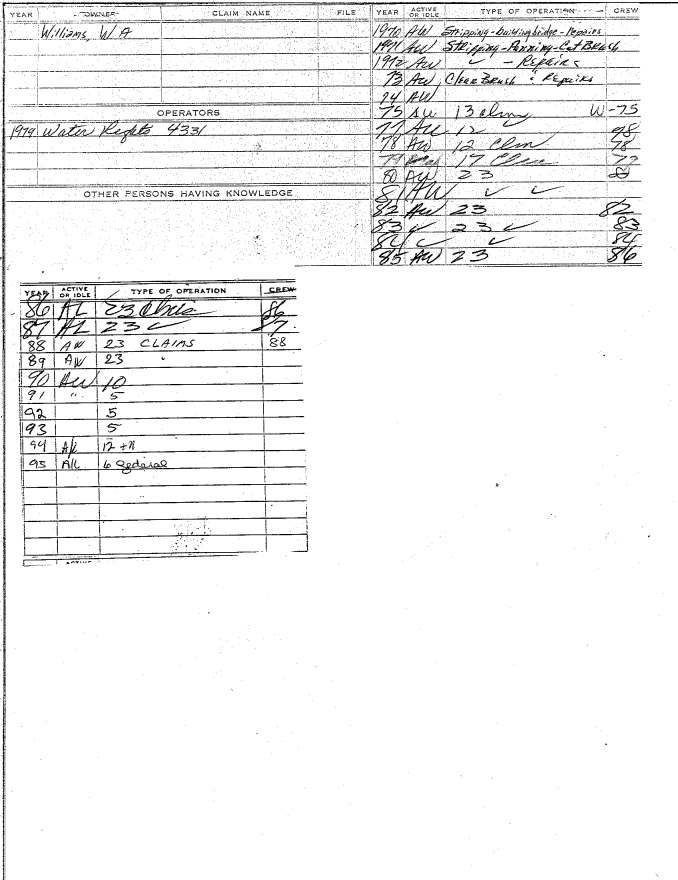 YEAR OWNER CLAIM NAME FILE
Williams, W A
OPERATORS
1979 Water Rights 4331
OTHER PERSONS HAVING KNOWLEDGE
YEAR ACTIVE OR IDLE TYPE OF OPERATION CREW
1970 AW Stripping - building bridge - Repairs
1971 AW Stripping - Panning - Cut Brush
1972 AW ✓ - Repairs
73 AW Clear Brush & Repairs
74 AW
75 AW 13 clm W-75
77 AW 12 ✓
78 AW 12 Clm 78
79 17 79
80 AW 23 80
81 AW ✓ ✓
82 AW 23 82
83 ✓ 23 ✓ 83
84 ✓ ✓ 84
85 AW 23 86
YEAR ACTIVE OR IDLE TYPE OF OPERATION CREW
86 AL 23 86
87 AL 23 ✓ 87
88 AW 23 CLAIMS 88
89 AW 23 "
90 AW 10
91 " 5
92 5
93 5
94 A/L 12
95 A/L 6 Federal